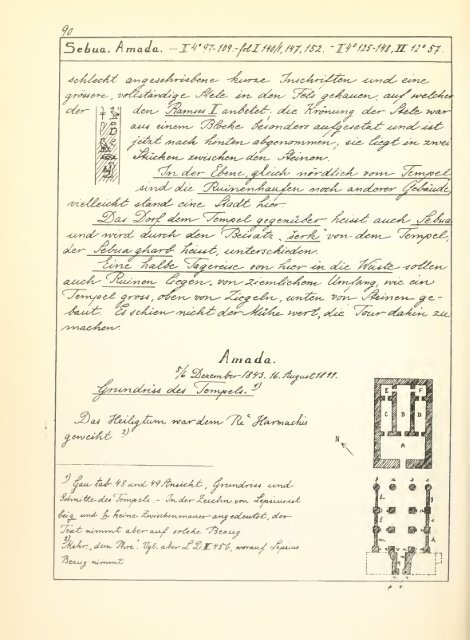 90
Sebua. Amada. — I 4° 97-109. - fol I. 140/1, 147, 152. - II 4° 135-148, III 12° 57.
schlecht angeschriebene kurze Inschriften und eine
grössere, vollständige Stele in den Fels gehauen, auf welcher
der den Ramses II anbetet, die Krönung der Stele war
aus einem Blocke besonders aufgesetzt und ist
jetzt nach hinten abgenommen, sie liegt in zwei
Stücken zwischen den Steinen.
In der Ebene, gleich nördlich vom Tempel
sind die Ruinenhaufen noch anderer Gebäude,
vielleicht stand eine Stadt hier.
Das Dorf dem Tempel gegenüber heisst auch Sebua
und wird durch den Beisatz "šerk" von dem Tempel,
der Sebua gharb heisst, unterschieden.
Eine halbe Tagereise von hier in die Wüste sollen
auch Ruinen liegen, von ziemlichem Umfang, wie ein
Tempel gross, oben von Ziegeln, unten von Steinen ge-
baut. Es schien nicht der Mühe wert, die Tour dahin zu
machen.
Amada.
5/6 Dezember 1843. 16. August 1844.
Grundriss des Tempels. 1)
Das Heiligtum war dem Re Harmachis
geweiht 2)
N
E F
C B D
A
1) Gau tab 48 und 49 Ansicht, Grundriss und
Schnitte des Tempels. - In der Zeichn. von Lepsius ist
beig und h keine Zwischenmauer angedeutet, der
Text nimmt aber auf solche Bezug.
2) Mehr "dem Phre". Vgl. aber L.D. III 45b, worauf Lepsius
Bezug nimmt